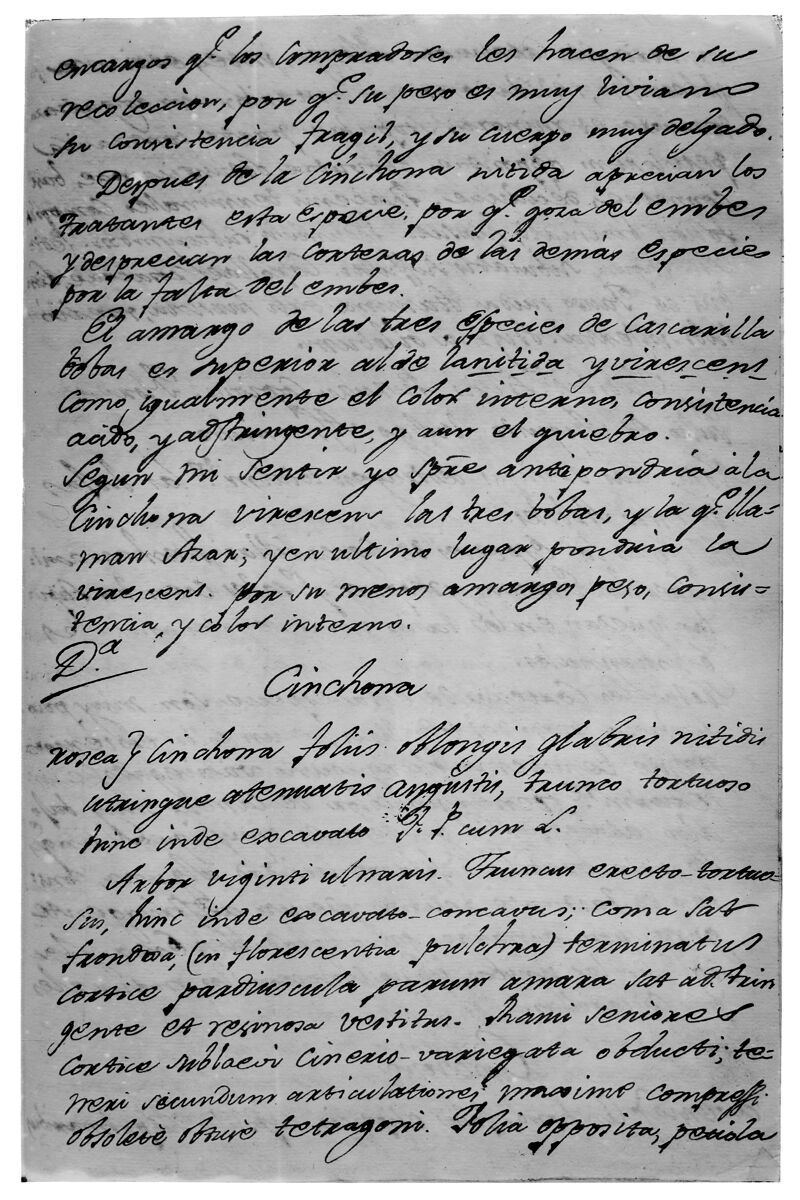 encargos q.e los Compradores les hacen de su
recoleccion, por q.e su peso es muy liviano
su consistencia fragil, y su cuerpo muy delgado.
Despues de la Cinchona nitida aprecian los
tratantes esta especie, por q.e goza del embes
y desprecian las cortezas de las demás especies
por la falta del embes.
El amargo de las tres especies de Cascarilla
bobas es superior al de la nitida y virescens
como igualmente el color interno, consistencia
acido, y adstringente, y aun el quiebro.
Segun mi sentir yo spre antepondria à la
Cinchona virescens las tres bobas, y la q.e lla=
man Azar; y en ultimo lugar pondria la
virescens. por su menos amargo, peso, consis=
tencia, y color interno.
D.a
Cinchona
rosea} Cinchona foliis oblongis glabris nitidis
utrinque atenuatis angustis, trunco tortuoso
hinc inde excavato F. P. cum L.
Arbor viginti ulnaris. Truncus erecto-tortuo-
sus, hinc inde excavato-concavus; coma sat
frondosa, (in florescentia pulchra) terminatus
Cortice pardiuscula parum amara sat adstrin
gente et resinosa vestitus. Rami seniores
cortice sublaevi cinerio-variegata obducti; te=
neri secundum articulationes maxime compressi
obsoletè obtusè tetragoni. Folia opposita, petiola